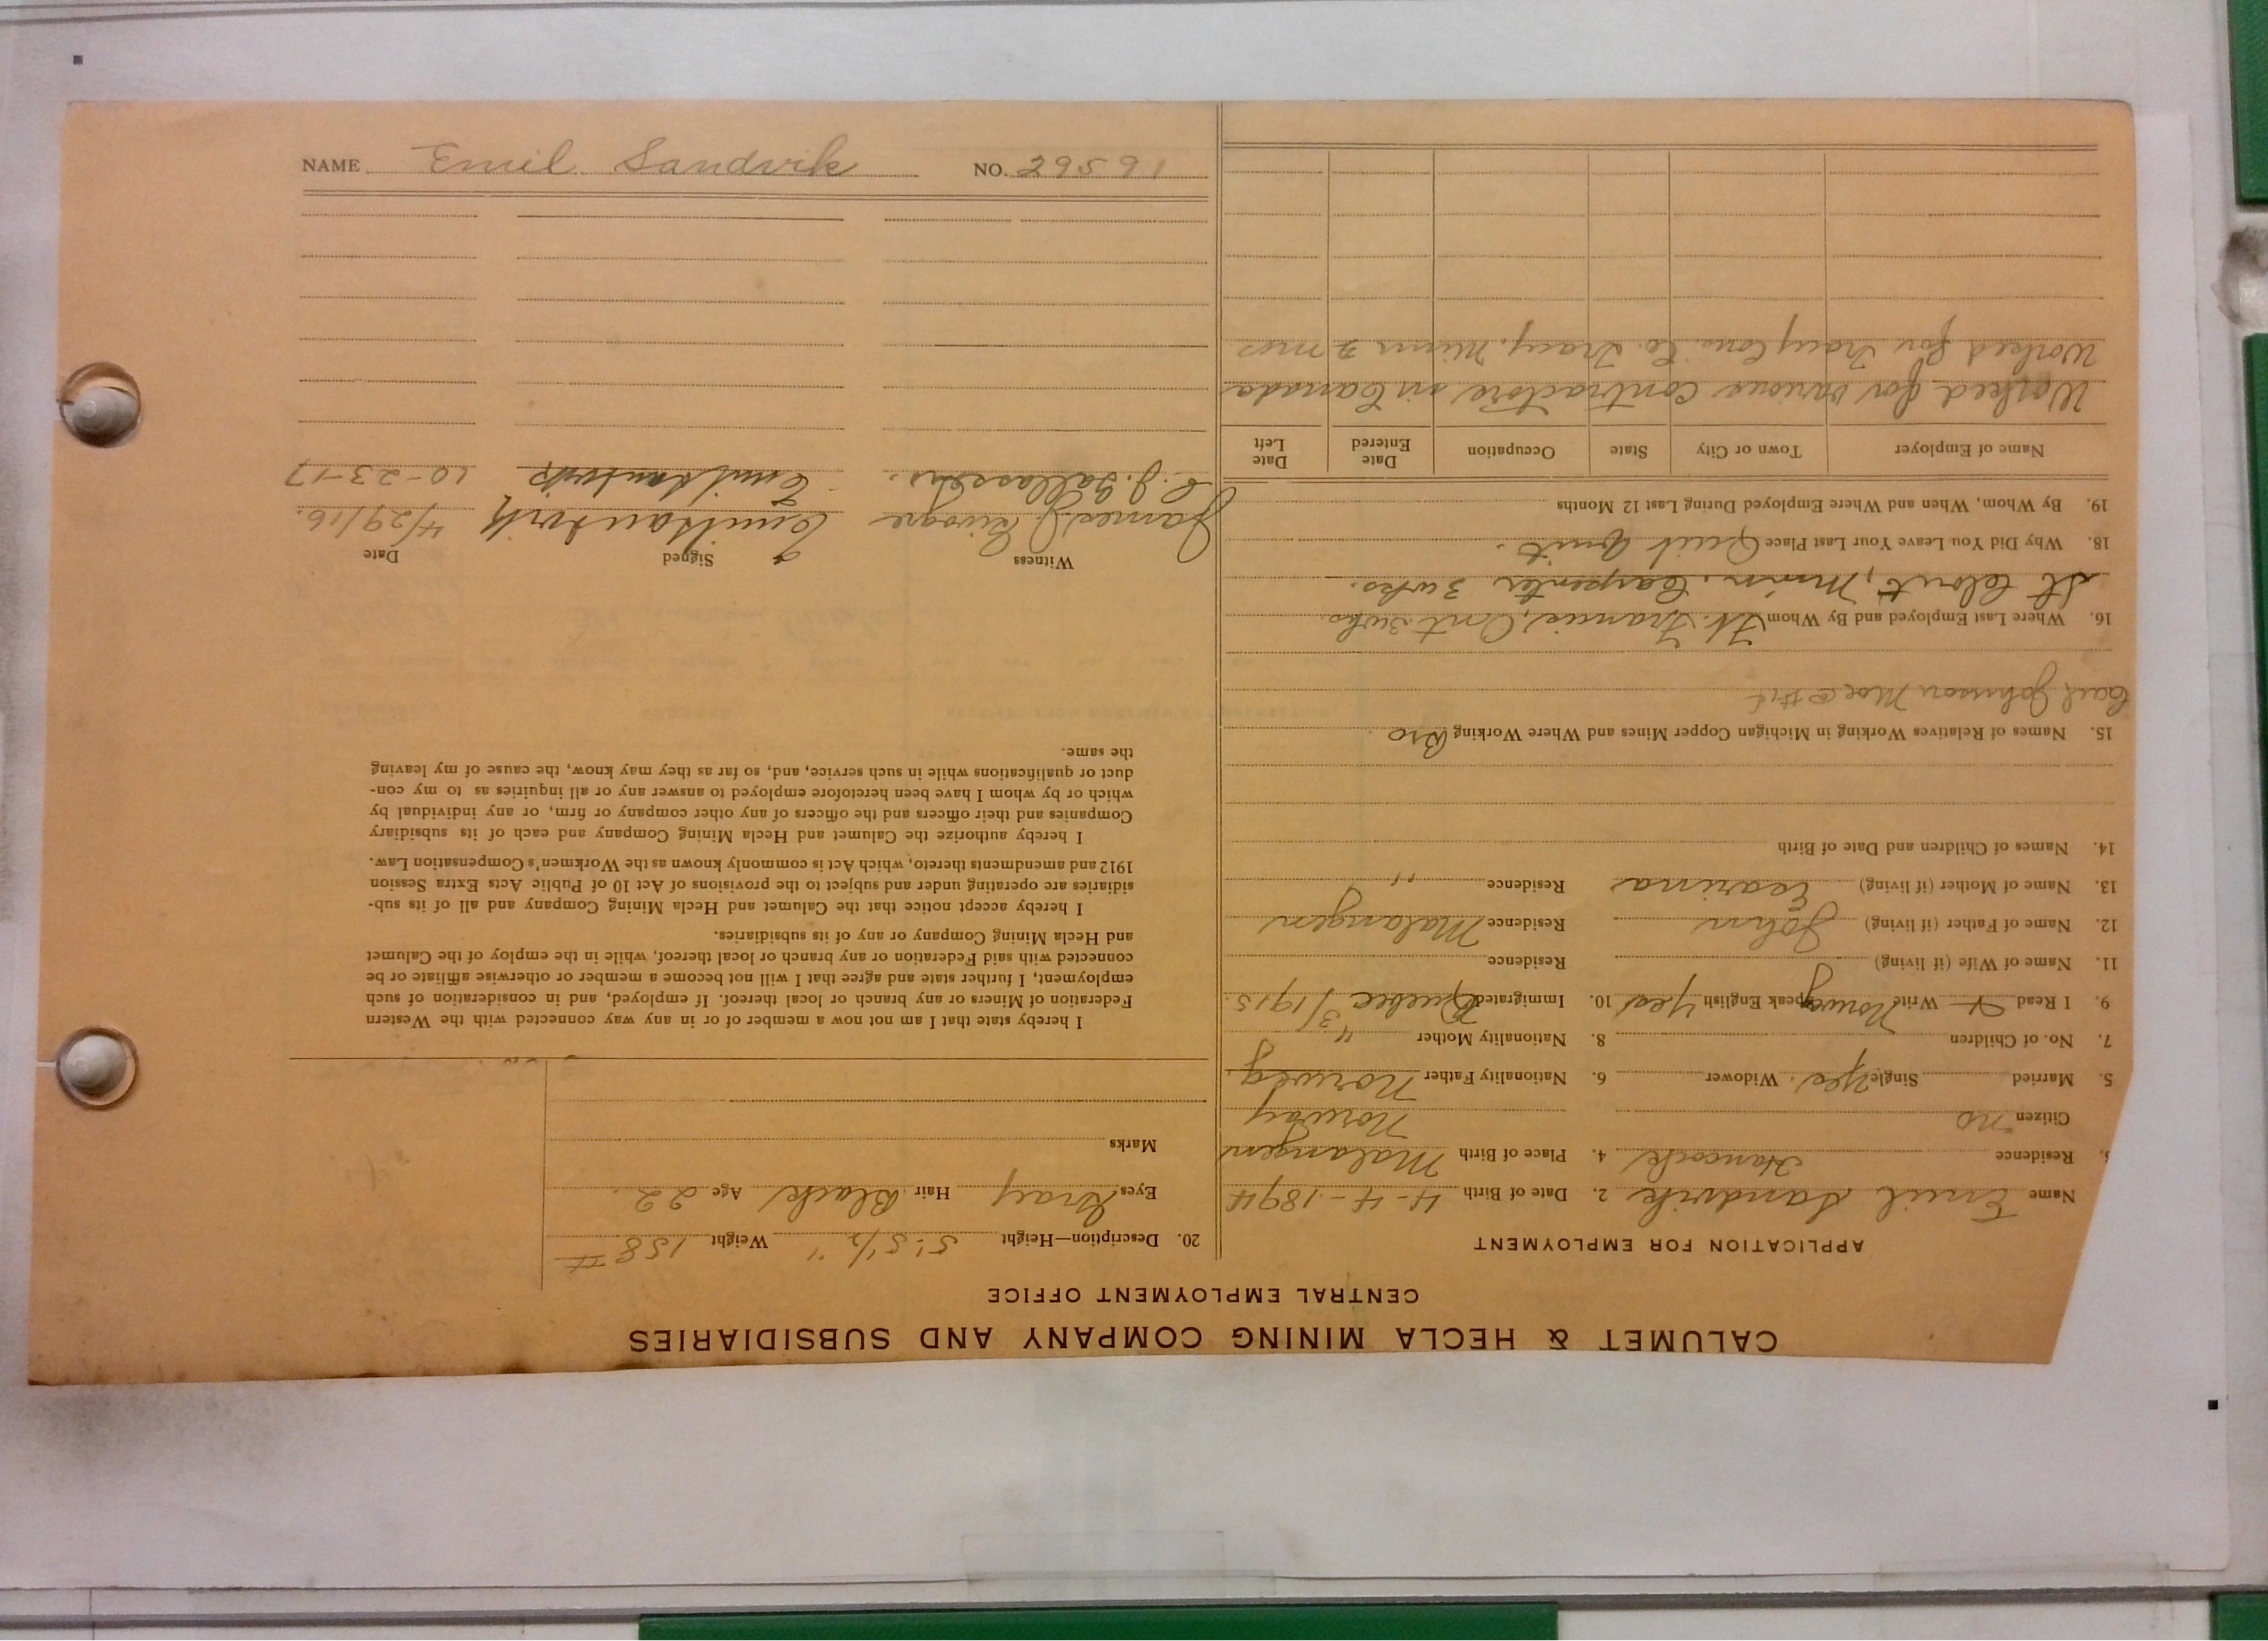 CALUMET & HECLA MINING COMPANY AND SUBSIDIARIES
CENTRAL EMPLOYMENT OFFICE
APPLICATION FOR EMPLOYMENT
Name Emil Sandvik 2. Date of Birth 4-4-1894
Residence Hancock 4. Place of Birth Malangen
Citizen no Norway
5. Married Single Yes Widower 6. Nationality Father Norweg.
7. No. of Children 8. Nationality Mother "
9. I Read Write Norweg Speak English Yes 10. Immigrated Quebec 3/1915.
11. Name of Wife (if living) Residence
12. Name of Father (if living) John Residence Malangen
13. Name of Mother (if living) Residence "
14. Names of Children and Date of Birth
15. Names of Relatives Working in Michigan Copper Mines and Where Working Bro
Carl Johnson
16. Where Last Employed and By Whom Ft. Francis, Ont. 3 wks.
St Clord, Minn. Carpenter 3 wks.
18. Why Did You Leave Your Last Place Quit Quit.
19. By Whom, When and Where Employed During Last 12 Months
Name of Employer Town or City State Occupation Date Entered Date Left
Worked for various contractors in Canada
Worked for Tracy Cons. Co. Tracy, Minn mos
20. Description—Height 5' 5 1/2" Weight 158 #
Eyes Gray Hair Black Age 22
Marks
I hereby state that I am not now a member of or in any way connected with the Western
Federation of Miners or any branch or local thereof. If employed, and in consideration of such
employment, I further state and agree that I will not become a member or otherwise affiliate or be
connected with said Federation or any branch or local thereof, while in the employ of the Calumet
and Hecla Mining Company or any of its subsidiaries.
I hereby accept notice that the Calumet and Hecla Mining Company and all of its sub-
sidiaries are operating under and subject to the provisions of Act 10 of Public Acts Extra Session
1912 and amendments thereto, which Act is commonly known as the Workmen's Compensation Law.
I hereby authorize the Calumet and Hecla Mining Company and each of its subsidiary
Companies and their officers and the officers of any other company or firm, or any individual by
which or by whom I have been heretofore employed to answer any or all inquiries as to my con-
duct or qualifications while in such service, and, so far as they may know, the cause of my leaving
the same.
Witness Signed Date
James J. Emil Sandvik 4/29/16.
Emil Sandvik 10-23-17
NAME Emil Sandvik NO. 29591